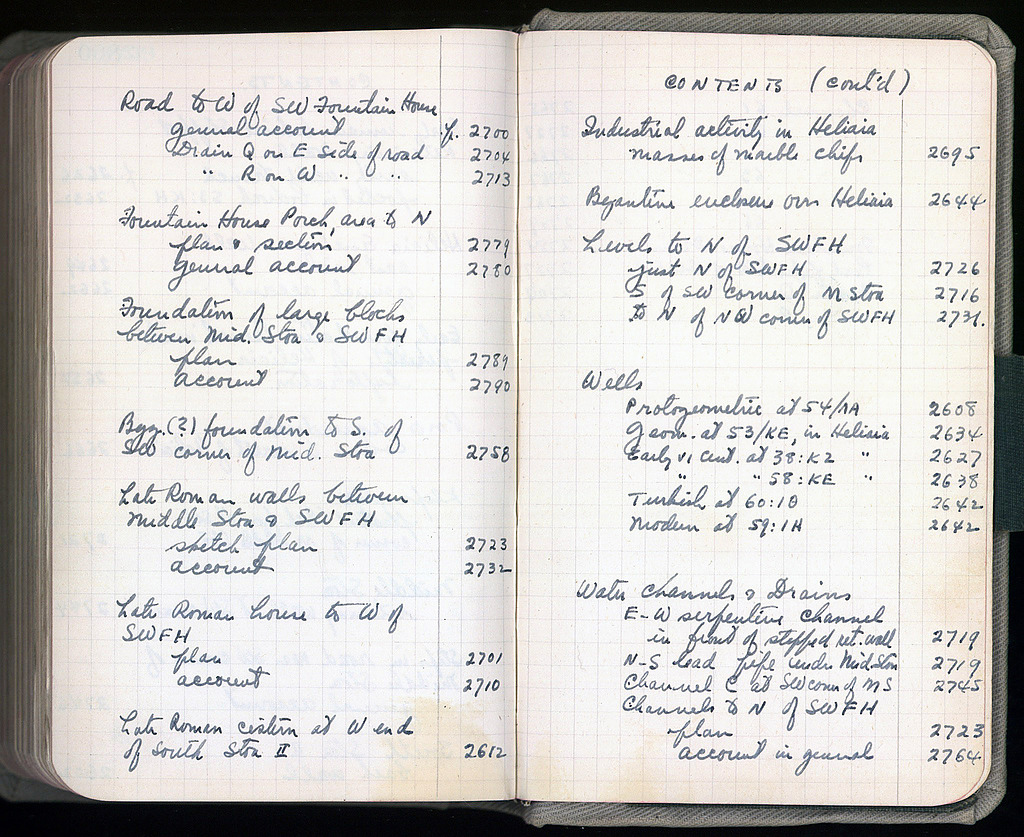 Road to W of SW Fountain House
general account p. 2700
Drain Q on E side of road 2704
" R on W " " 2713
Fountain House Porch, area to N
plan & section 2779
general account 2780
Foundation of large blocks
between Mid. Stoa & SWFH
plan 2789
account 2790
Byz. (?) foundation to S. of
SW corner of Mid. Stoa 2758
Late Roman walls between
Middle Stoa & SWFH
sketch plan 2723
account 2732
Late Roman house to W of
SWFH
plan 2701
account 2710
Late Roman cistern at W end
of South Stoa II 2612
CONTENTS (cont'd)
Industrial activity in Heliaia
masses of marble chips 2695
Byzantine enclosure over Heliaia 2644
Levels to N of SWFH
just N of SWFH 2726
S of SW corner of M Stoa 2716
to N of NW corner of SWFH 2731.
Wells
Protogeometric at 54/ΛΑ 2608
Geom. at 53/ΚΕ, in Heliaia 2634
Early VI cent. at 38:ΚΖ " 2627
" " 58:ΚΕ " 2638
Turkish at 60:ΙΘ 2642
Modern at 59:ΙΗ 2642
Water Channels & Drains
E-W serpentine channel
in front of stepped ret. wall 2719
N-S lead pipe under Mid. Stoa 2719
Channel C at SW corn of MS 2745
Channels to N of SWFH
plan 2723
account in general 2764